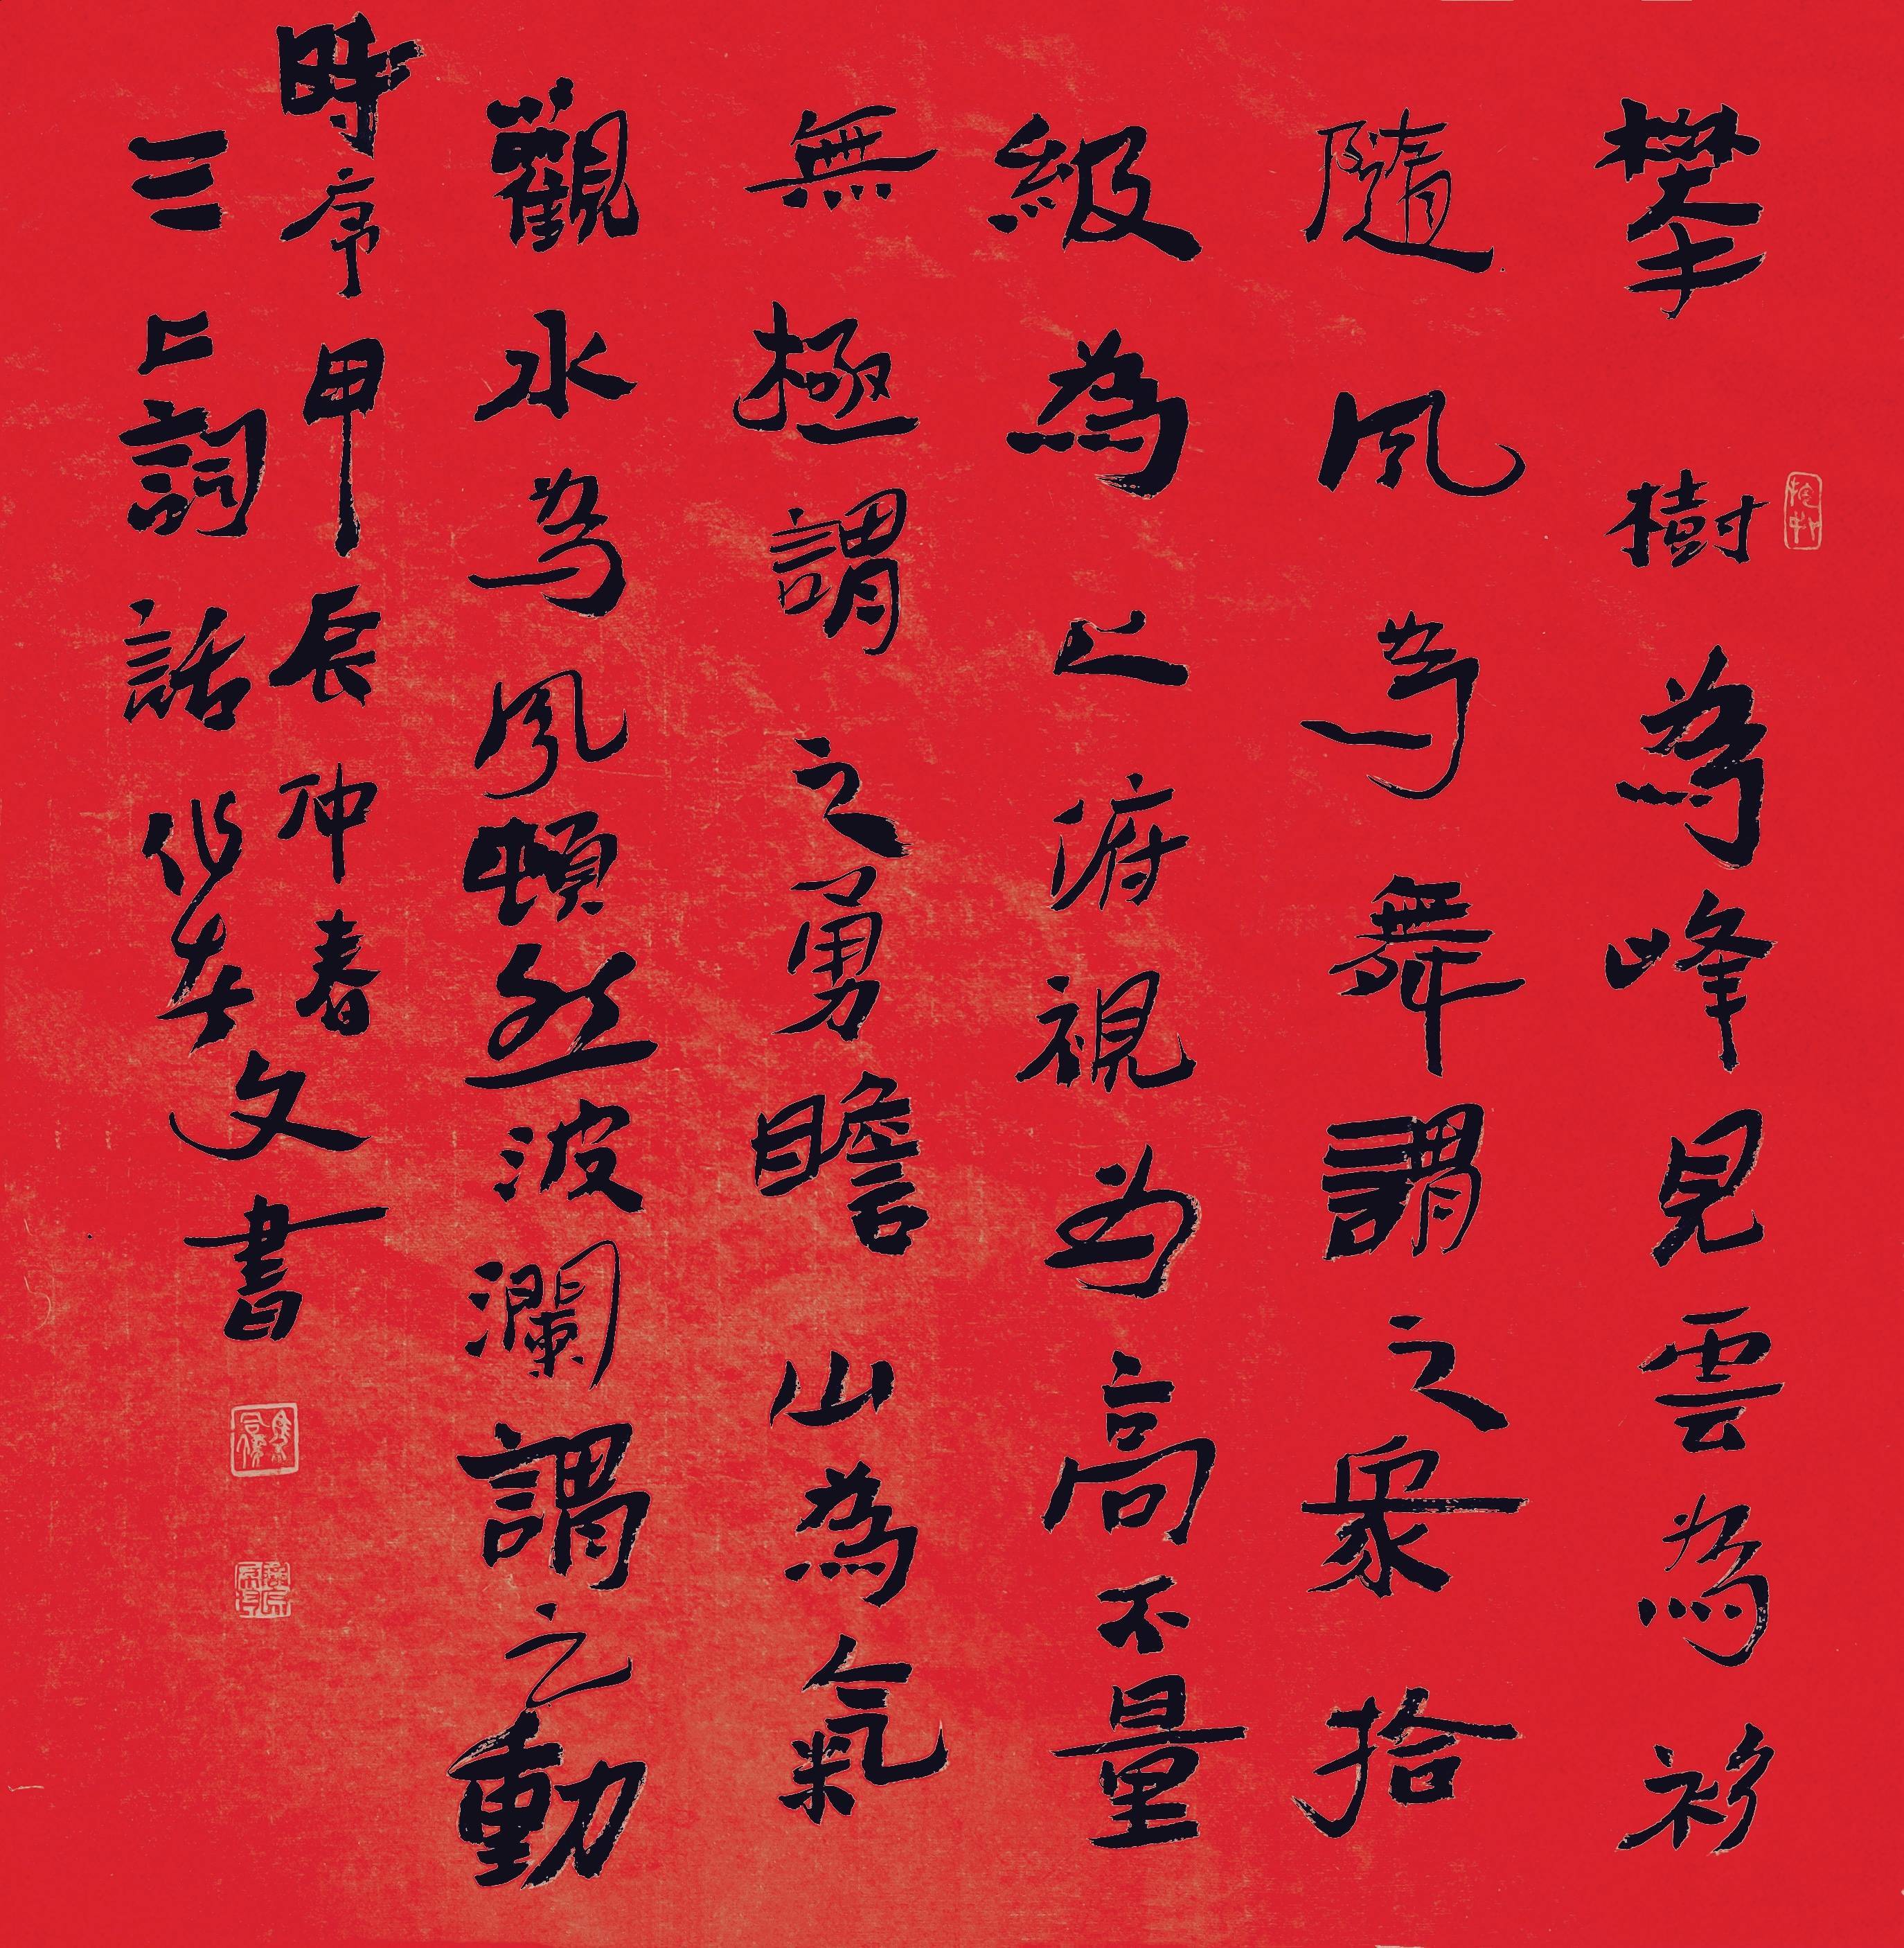 攀樹為峰見雲為衫
隨風為舞謂之眾拾
級為上俯視為高不量
無極謂之勇瞻山為氣
觀水為風頓然波瀾謂之動
時序甲辰仲春
三上詞話 文書